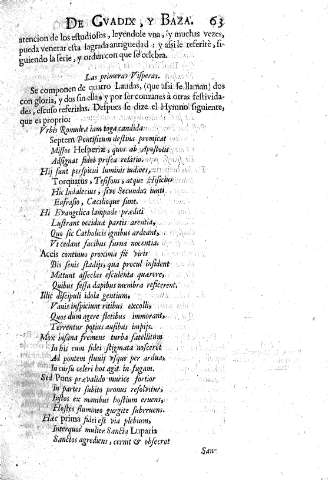 DE GVADIX, Y BAZA. 63
atencion de los estudiosos, leyendole vna, y muchas vezes,
pueda venerar esta sagrada antiguedad: y assi le referirè, si-
guiendo la serie, y orden con que se celebra.
Las primeras Visperas.
Se componen de quatro Laudas, (que assi se llaman) dos
con gloria, y dos sin ella, y por ser comunes à otras festivida-
des, escuso referirlas. Despues se dize el Hymno siguiente,
que es proprio:
Vrbis Romuleæ iam toga candida
Septem Pontificum destina promicat
Missos Hesperiæ, quos ab Apostolis
Assignat fidei prisca relatio.
Hij sunt perspicui luminis indices,
Torquatus, Tesifons, atque Hisicius
Hic Indalecius, sive Secundus iuncti
Eufrasio, Cæcilioque sunt.
Hi Evangelica lampade præditi
Lustrant occidua partis arentia,
Quo sic Catholicis ignibus ardeant,
Vt cedant facibus furna nocentia.
Accis continuo proxima fit viris
Bis senis stadijs, qua procul insident
Mittunt asseclas esculenta quærere,
Quibus fessa dapibus membra reficerent.
Illic discipuli idola gentium,
Vanis inspiciunt ritibus excolli,
Quos dum agere fletibus immorant,
Terrentur potius ausibus impijs.
Mox insana fremens turba satellitum
In his cum fidei stigmata nosceret
Ad pontem fluvij vsque per ardua,
In cursu celeri hos agit in fugam.
Sed Pons prævalido murice fortior
In partes subito pronus resolvitur,
Iustos ex manibus hostium eruens,
Hostes flumineo gurgite subruens.
Hæc prima fidei est via plebium,
Interquos mulier Sancta Luparia
Sanctos agrediens, cernit & obsecrat
San-